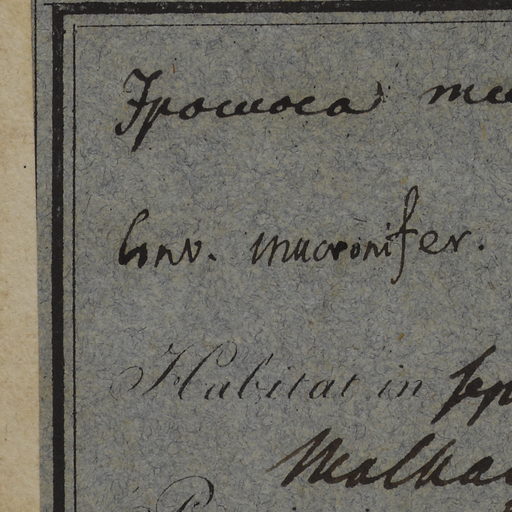 Ipomoea mu
Conv. mucronifer.
Habitat in sep